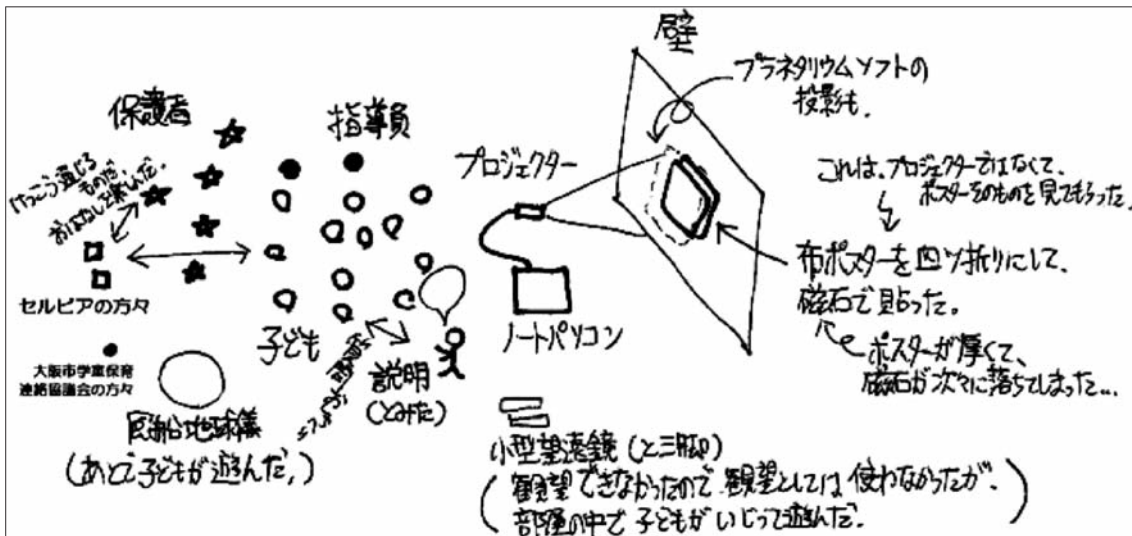 壁
プラネタリウムソフトの
投影も。
保護者
指導員
プロジェクター
これは、プロジェクターではなくて、
ポスターそのものを見てもらった。
けっこう通じる
ものだ。
おはなしを楽しんだ。
布ポスターを四ツ折りにして、
磁石で貼った。
セルビアの方々
子ども
ノートパソコン
ポスターが厚くて、
磁石が次々に落ちてしまった…
大阪市学童保育
連絡協議会の方々
説明
(とみた)
風船地球儀
(あとで子どもが遊んだ。)
小型望遠鏡(と三脚)
(観望できなかったので観望としては使わなかったが、
部屋の中で子どもがいじって遊んだ。)